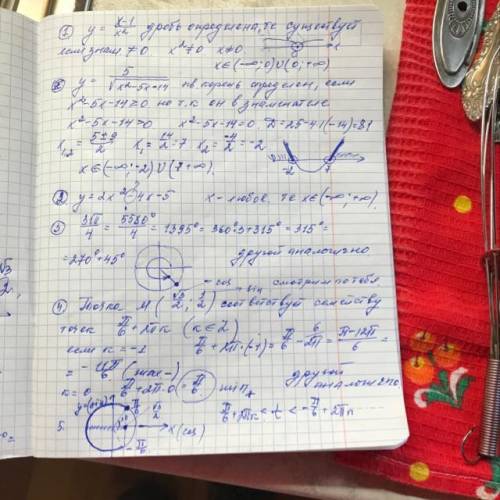 ① y = (x-1)/x² дробь определена, те существует
если знам ≠ 0 x² ≠ 0 x ≠ 0
x∈(-∞; 0)∪(0; +∞)
② y = 5/√(x²-5x-14) кв. корень определен, если
x²-5x-14 ≥ 0 но т.к. он в знаменателе
x²-5x-14 > 0 x²-5x-14 = 0 D = 25-4·1·(-14) = 81
x₁,₂ = (5±9)/2 x₁ = 14/2 = 7 x₂ = -4/2 = -2
-2 7
x∈(-∞; -2)∪(7; +∞)
③ y = 2x²-4x-5 x - любое. те x∈(-∞; +∞)
③ 31π/4 = 5580°/4 = 1395° = 360°·3+315° = 315° =
= 270° + 45° другой аналогично
- cos sin смотрим по табл.
④ Точка M(√3/2; 1/2) соответствует семейству
точек π/6 + 2πk (k∈Z)
если k = -1 π/6 + 2π·(-1) = π/6 - 2π = (π-12π)/6 =
= -11π/6 (max-)
k = 0 π/6 + 2π·0 = π/6 min+ другой
аналогично
y (sin) π/6
5. x (cos) π/6 + 2πn < t < -π/6 + 2πn
-π/6